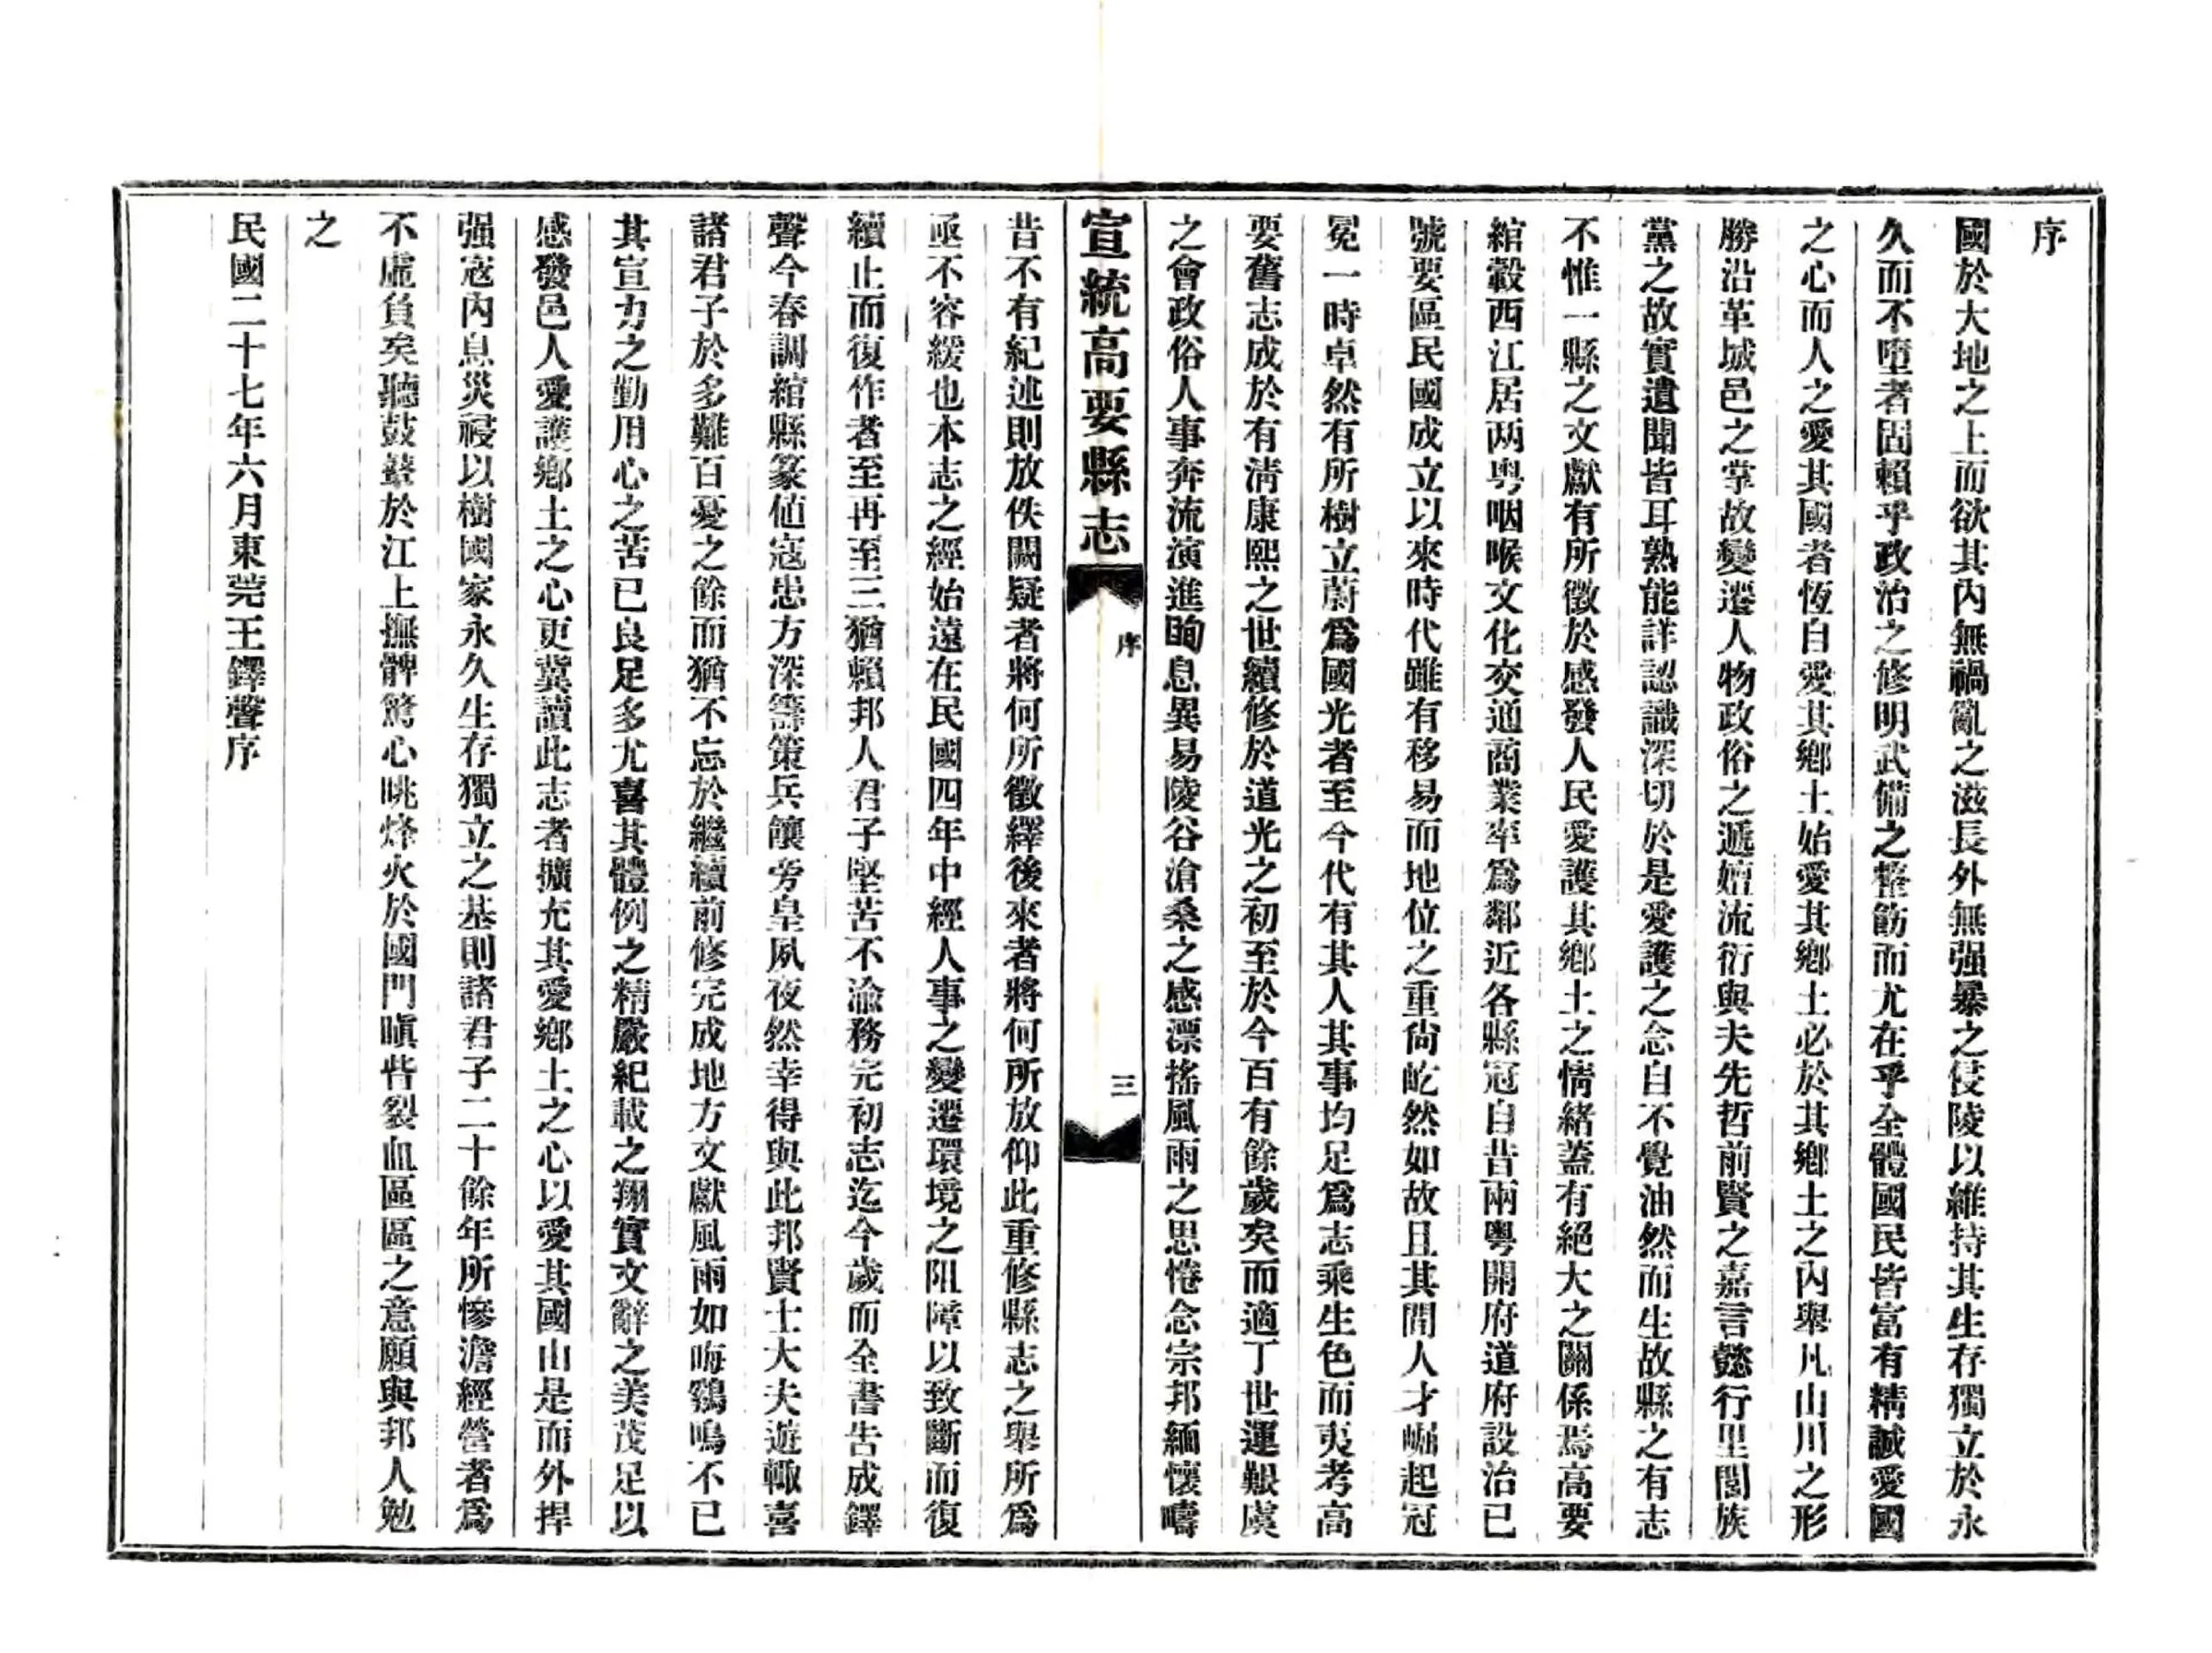 序
國於大地之上而欲其內無禍亂之滋長外無强暴之侵陵以維持其生存獨立於永
久而不墮者固賴乎政治之修明武備之整飭而尤在乎全體國民皆富有精誠愛國
之心而人之愛其國者恆自愛其鄉土始愛其鄉土必於其鄉土之內舉凡山川之形
勝沿革城邑之掌故變遷人物政俗之遞嬗流衍與夫先哲前賢之嘉言懿行里閭族
黨之故實遺聞皆耳熟能詳認識深切於是愛護之念自不覺油然而生故縣之有志
不惟一縣之文獻有所徵於感發人民愛護其鄉土之情緒蓋有絕大之關係焉高要
綰轂西江居两粤咽喉文化交通商業率爲鄰近各縣冠自昔兩粵開府道府設治已
號要區民國成立以來時代雖有移易而地位之重尙屹然如故且其間人才崛起冠
冕一時卓然有所樹立蔚爲國光者至今代有其人其事均足爲志乘生色而夷考高
要舊志成於有淸康熙之世續修於道光之初至於今百有餘歲矣而適丁世運艱虞
之會政俗人事奔流演進眴息異易陵谷滄桑之感漂搖風雨之思惓念宗邦緬懷疇
宣統高要縣志
序
三
昔不有紀述則放佚闕疑者將何所徵繹後來者將何所放仰此重修縣志之舉所爲
亟不容緩也本志之經始遠在民國四年中經人事之變遷環境之阻障以致斷而復
續止而復作者至再至三猶賴邦人君子堅苦不渝務完初志迄今歲而全書告成鐸
聲今春調綰縣篆値寇患方深籌策兵饟旁皇夙夜然幸得與此邦賢士大夫遊輙喜
諸君子於多難百憂之餘而猶不忘於繼續前修完成地方文獻風雨如晦鷄鳴不已
其宣力之勤用心之苦已良足多尤喜其體例之精嚴紀載之翔實文辭之美茂足以
感發邑人愛護鄉土之心更冀讀此志者擴充其愛鄉土之心以愛其國由是而外捍
强寇內息災祲以樹國家永久生存獨立之基則諸君子二十餘年所慘澹經營者爲
不虛負矣聽鼓鼙於江上撫髀驚心眺烽火於國門瞋眥裂血區區之意願與邦人勉
之
民國二十七年六月東莞王鐸聲序